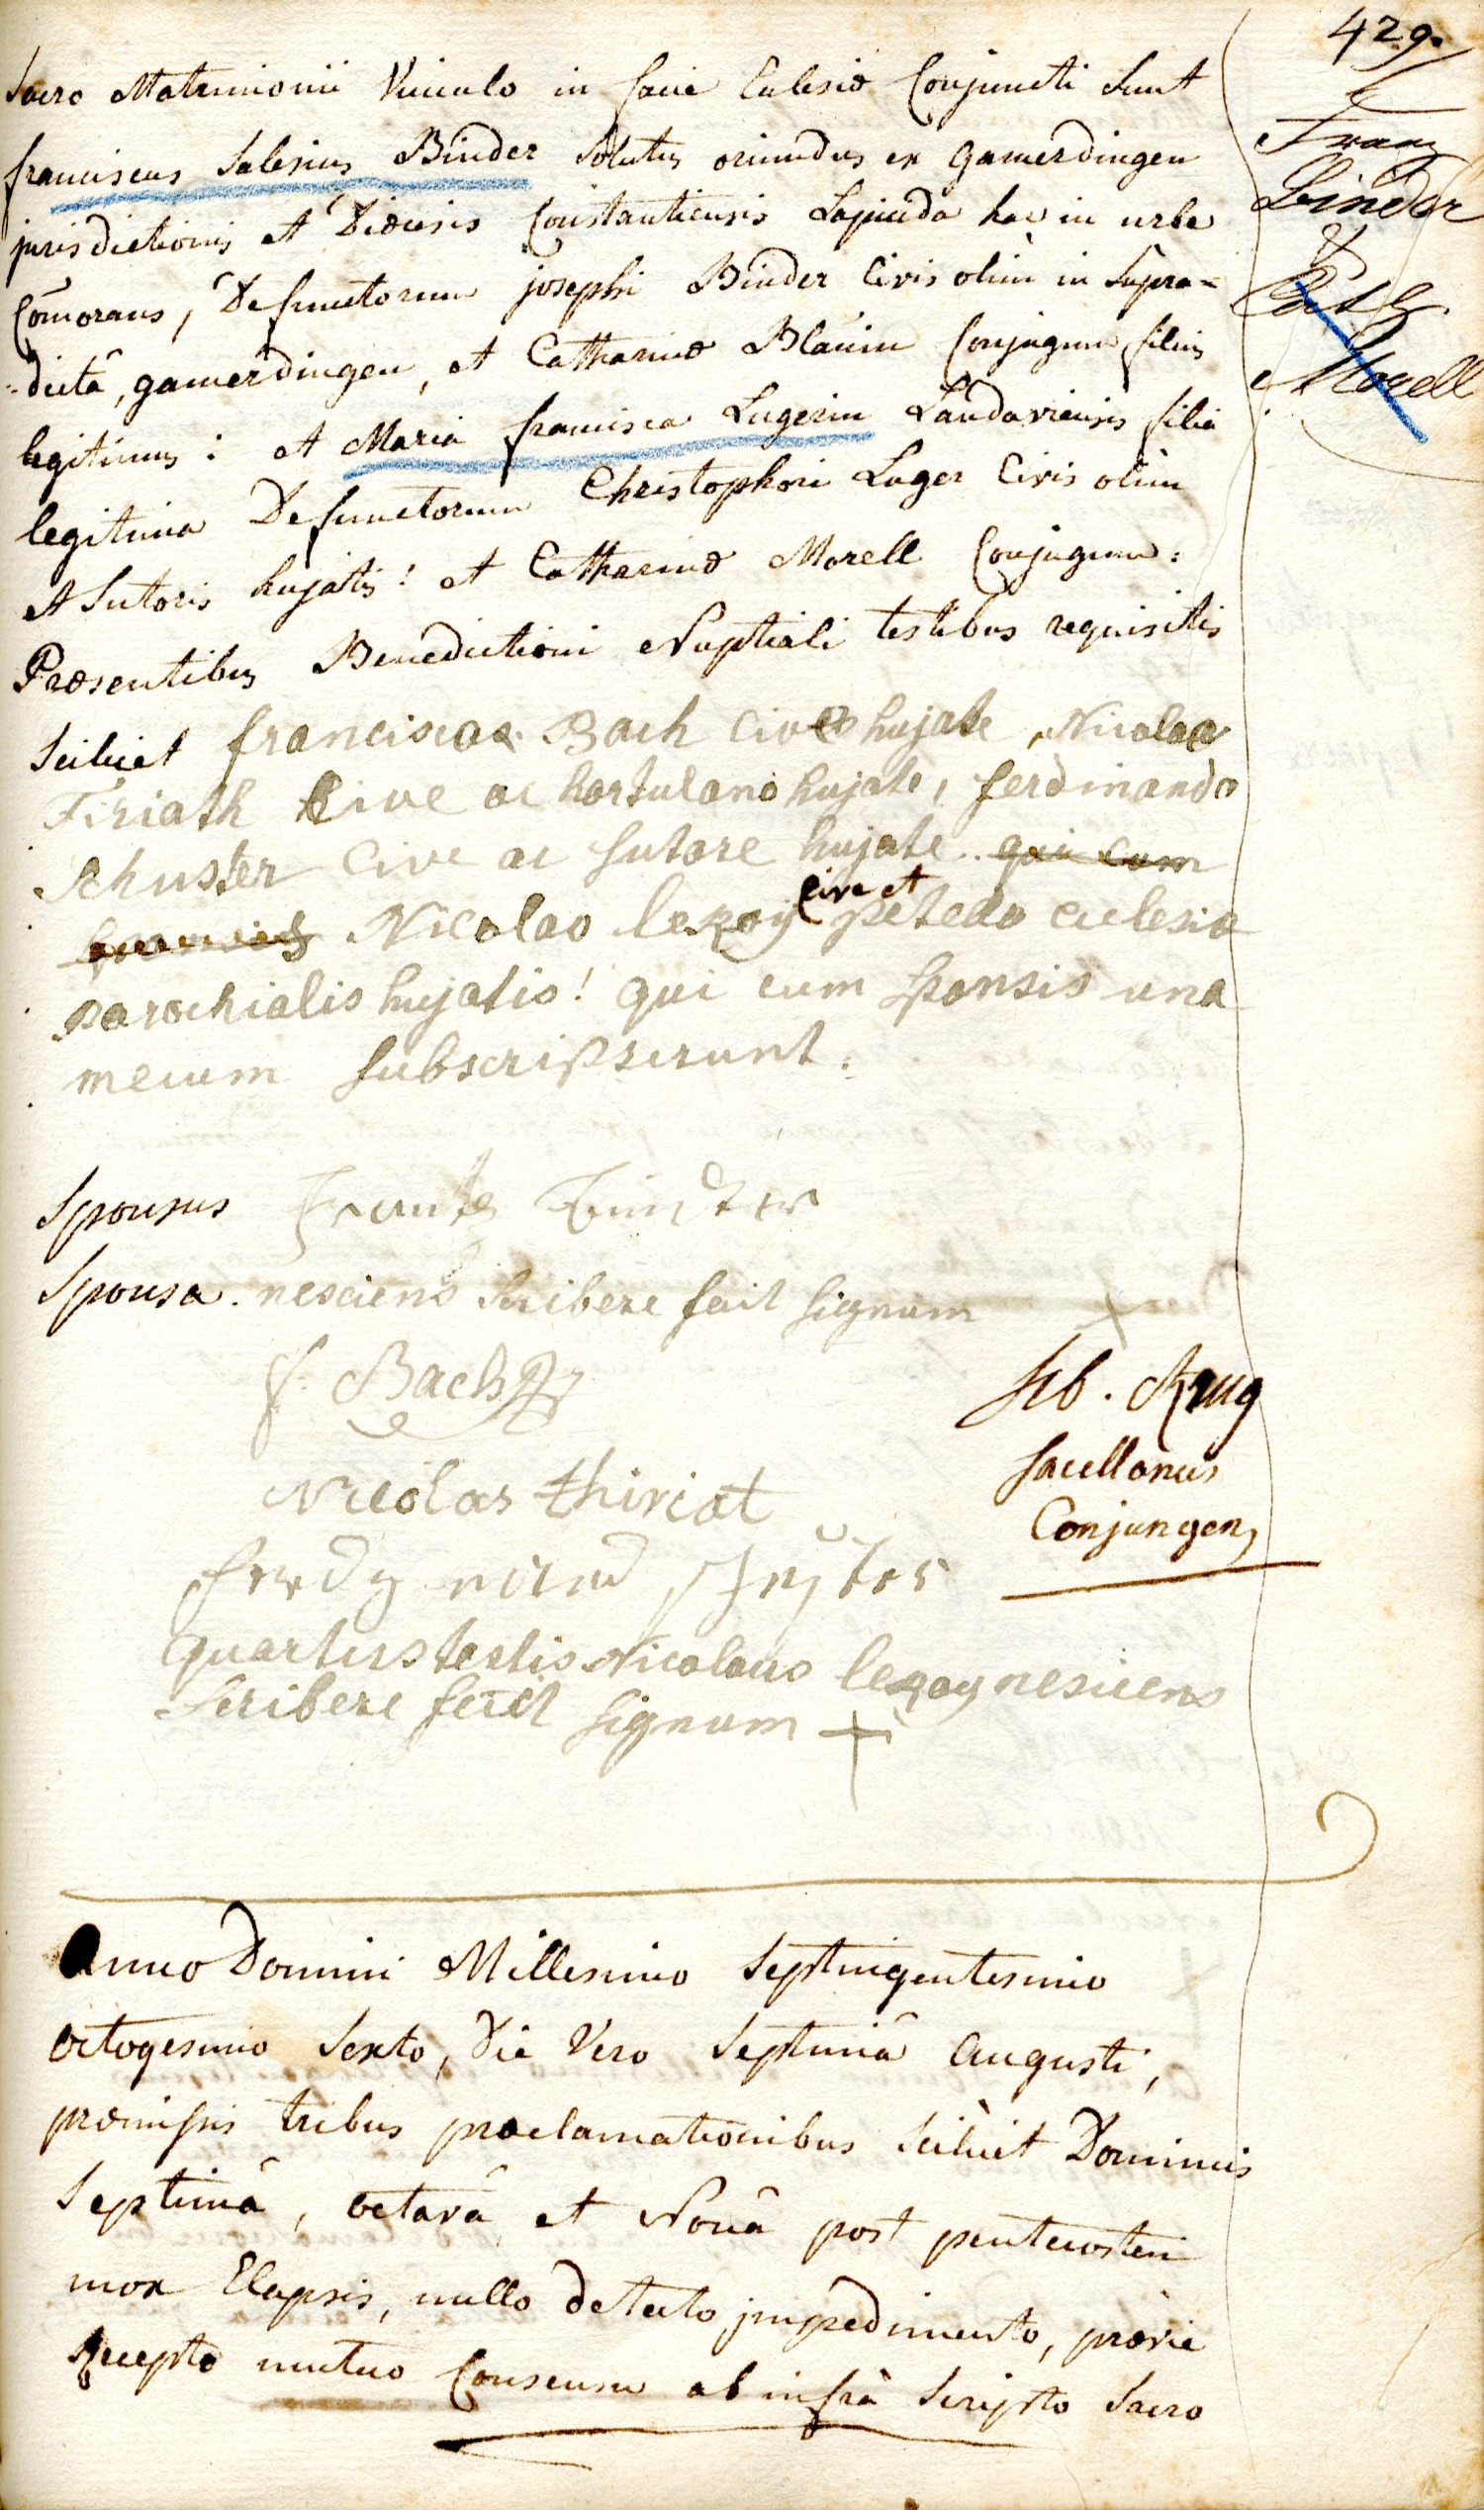 429.
Sacro Matrimonii Vinculo in facie Eclesiæ Conjuncti Sunt
franciscus Salesius Binder Solutus oriundus ex gamerdingen
jurisdictionis et Dioecesis Constantiensis Lapicida hac in urbe
Comorans, Defunctorum josephi Binder Civis olim in supra=
-dictâ, gamerdingen, et Catharinæ Blauin Conjugum filius
legitimus : et Maria francisca Lugerin Landaviensis filia
legitima Defunctorum Christophori Luger Civis olim
et Sutoris hujatis ! et Catharinæ Morell Conjugum :
Præsentibus Benedictioni Nuptiali testibus requisitis
Scilicet francisco Bach Cive hujate, Nicolao
Tiriath Cive ac hortulano hujate, ferdinando
Schuster Cive ac Sutore hujate .. qui cum
Nicolao leroy Cive et pedelo eclesiæ
parochialis hujatis ! qui cum Sponsis una
mecum Subscripserunt.
Franz
Binder
&
Cath.
Morell
Sponsus Frantz Binder
Sponsa. nesciens Scribere fecit Signum +
f. Bach
Seb. Krug
Sacellanus
Conjungens
Nicolas thiriat
ferdynand
quartus testis Nicolaus leroy nesciens
Scribere fecit Signum +
Anno Domini Millesimo Septingentesimo
octogesimo Sexto, Die Vero Septimâ Augusti,
præmissis tribus proclamationibus Scilicet Dominicis
Septimâ, octavâ et Nonâ post pentecosten
mox Elapsis, nullo detecto jmpedimento, prævie
accepto mutuo Consensu ab infrà Scripto Sacro